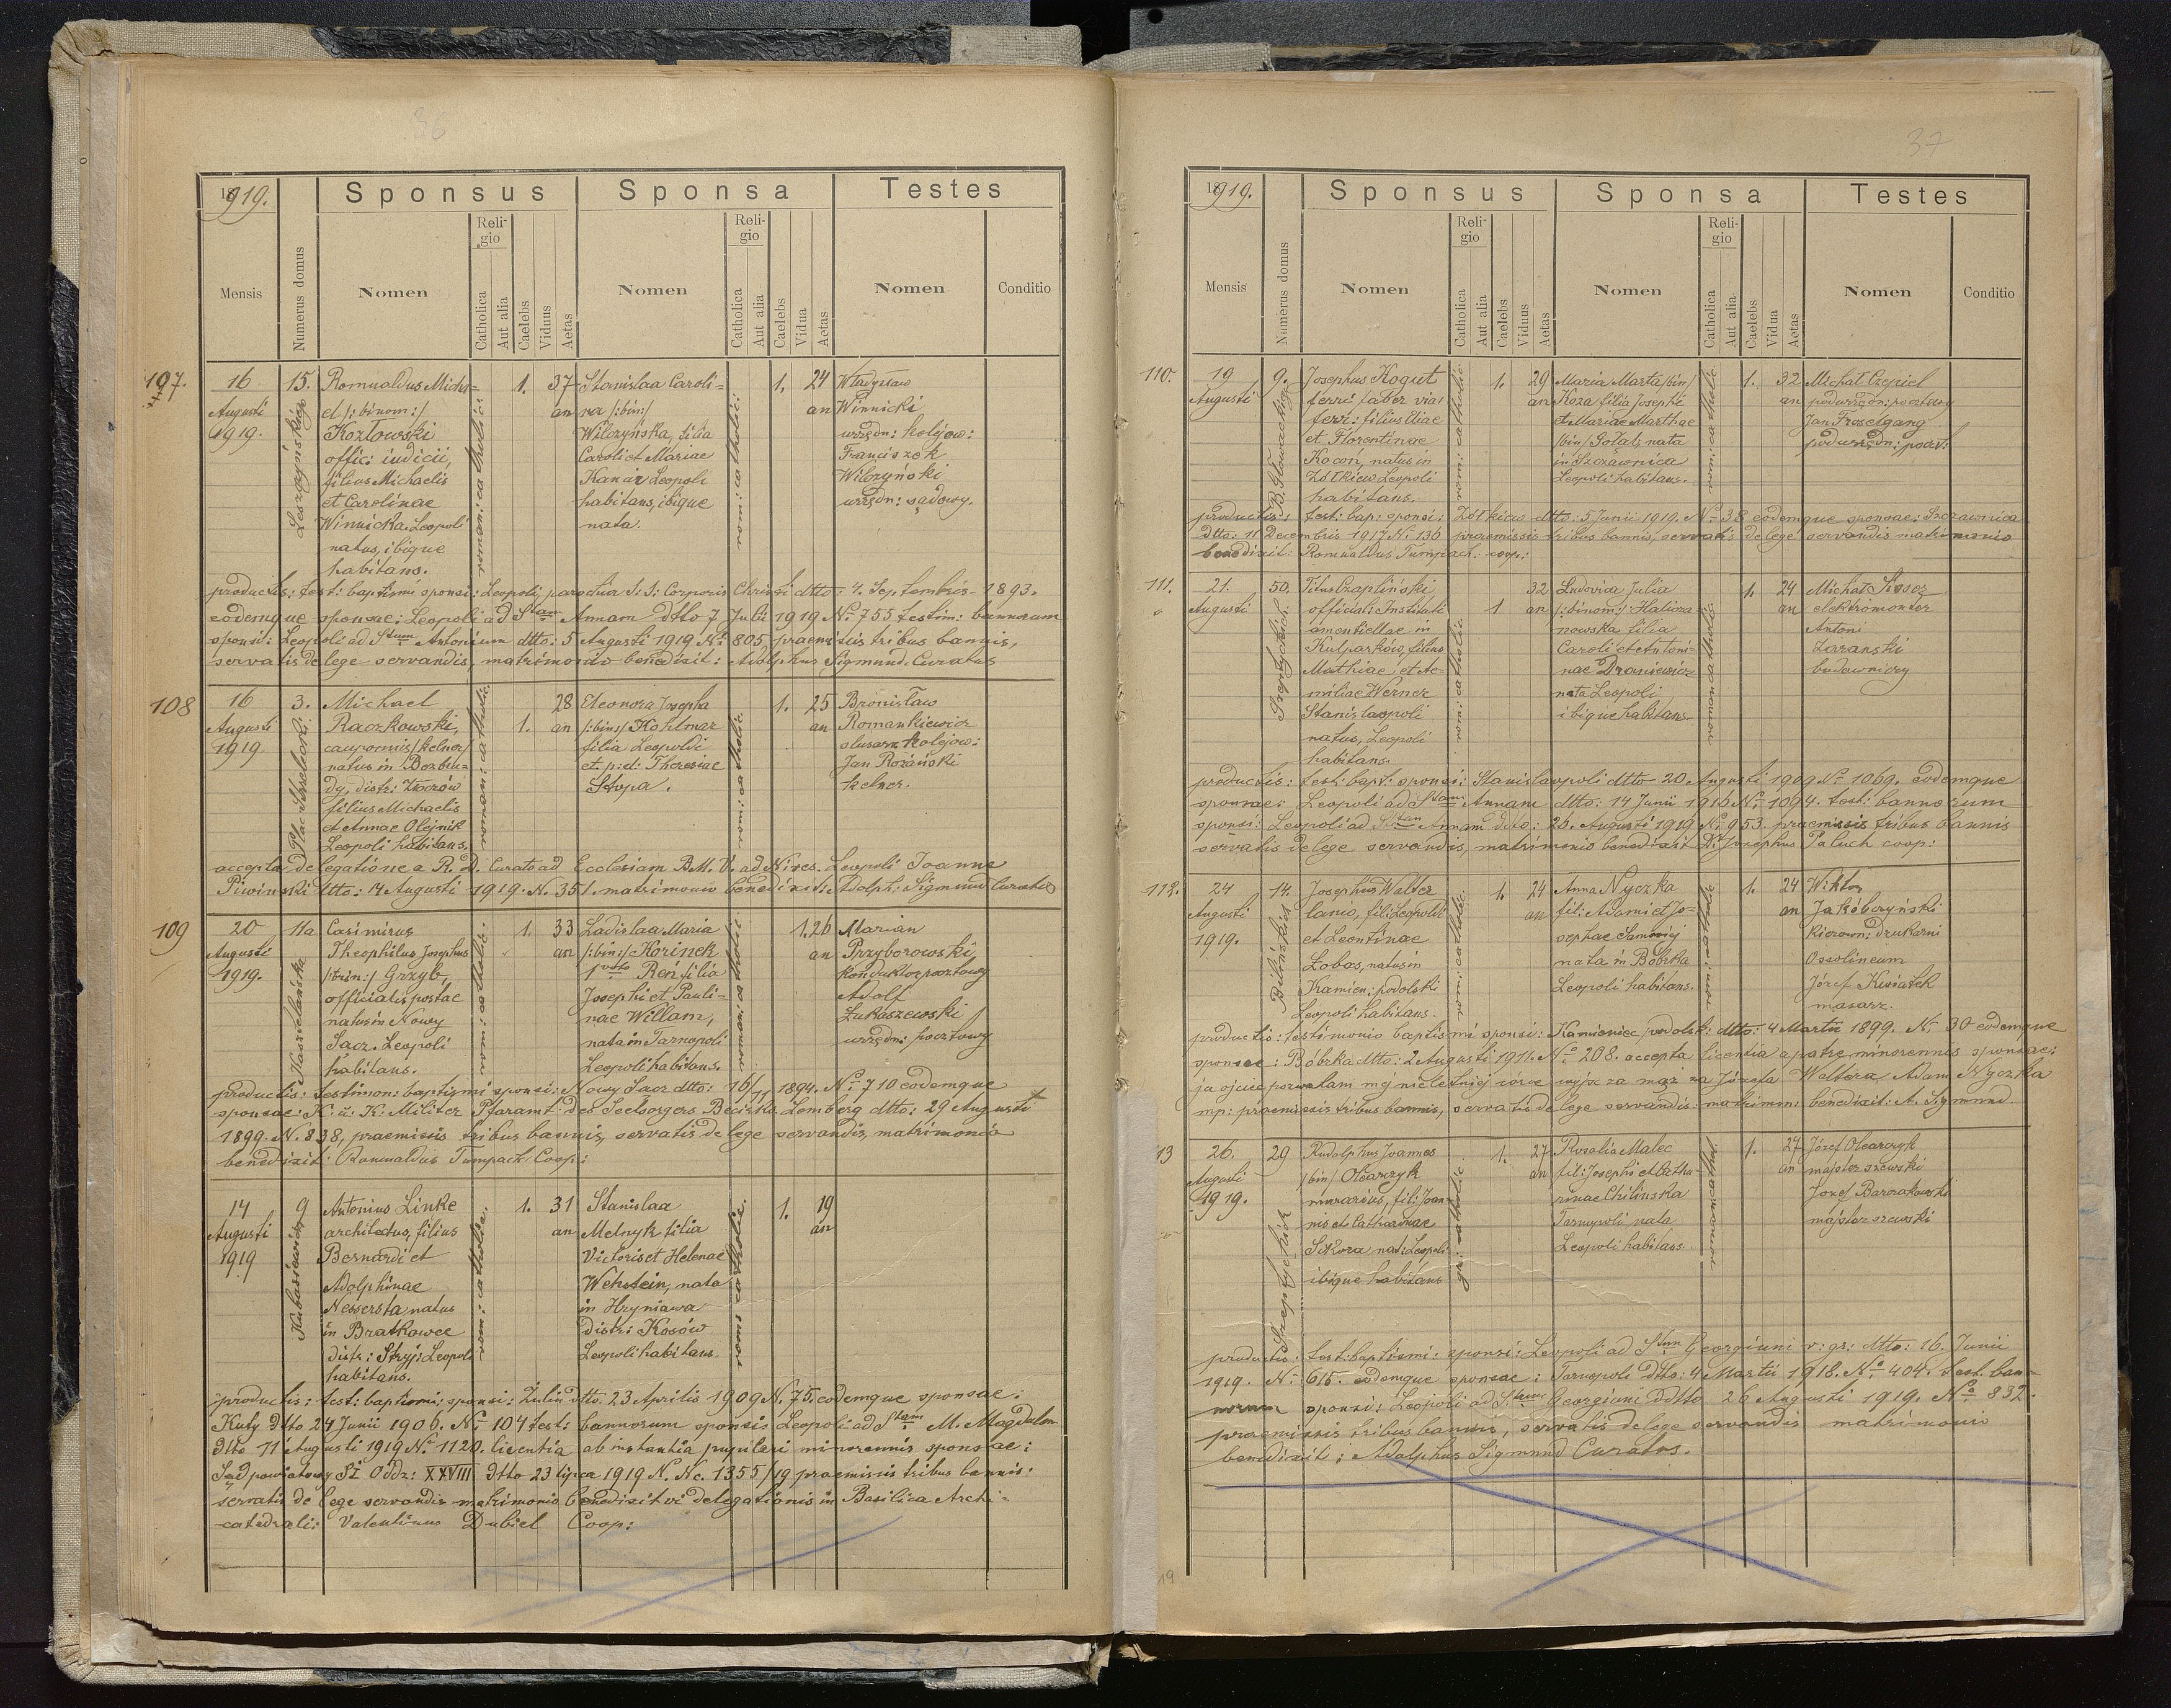 36
1919.
Sponsus Sponsa Testes
Mensis
Numerus domus
Nomen
Religio
Catholica
Aut alia
Caelebs
Viduus
Aetas
Nomen
Religio
Catholica
Aut alia
Caelebs
Vidua
Aetas
Nomen
Conditio
107.
16
Augusti
1919.
15.
Romualdus Micha=
el /:binom:/
Kozłowski
offic: iudicii,
filius Michaelis
et Carolinae
Winnicka Leopoli
natus, ibique
habitans.
roman: catholic:
1.
37
an
Stanislaa Caroli=
na /:bin:/
Wilczyńska, filia
Caroli et Mariae
Kanar Leopoli
habitans, ibique
nata.
rom: catholic:
1.
24
an
Władysław
Winnicki
urzędn: kolejow:
Franciszek
Wilczyński
urzędn: sądowy.
productis: test: baptismi sponsi: Leopoli, parochia S: S: Corporis Christi dtto: 4. Septembris 1893.
eodemque sponsae: Leopoli ad Stam Annam dtto 7 Julii 1919 No 755 testim: bannorum
sponsi: Leopoli ad Stum Antonium dtto: 5 Augusti 1919 No 805, praemissis tribus bannis,
servatis de lege servandis, matrimonio benedixit: Adolphus Sigmund Curatus
108
16
Augusti
1919
3.
Plac Strzelecki:
Michael
Raczkowski,
cauponis/kelner/
natus in
dy, distr: Złoczów
filius Michaelis
et Annae Olejnik
Leopoli habitans.
roman: catholic:
1.
28
an
Eleonora Josepha
/:bin:/ Kohlman
filia Leopoldi
et p: d: Theresiae
Stopa.
rom: catholic:
1.
25
an
Bronisław
Romankiewicz
slusarz kolejow:
Jan Rożański
kelner.
accepta delegatione a R. D. Curato ad Ecclesiam B. M. V. ad Nives Leopoli Joanne
Piwinski dtto: 14 Augusti 1919. N. 351. matrimonio benedixit: Adolph: Sigmund Curatus
109
20
Augusti
1919.
11a
Kasztelańska
Casimirus
Theophilus Josephus
/:trin:/ Grzyb,
officialis postae
natus in Nowy
Sacz. Leopoli
habitans.
rom: catholic:
1.
33
an
Ladislaa Maria
/:bin:/ Korinek
1voto Ren filia
Josephi et Pauli=
nae Willam,
nata in Tarnopoli
Leopoli habitans.
roman. catholic:
1.
26
an
Marian
Przyborowski
konduktor pocztowy
Adolf
Łukaszewski
urzędn: pocztowy
productis: testimon: baptismi sponsi: Nowy Sacz dtto: 16/11 1894. No 710 eodemque
sponsae: K: u: K: Militer Pfaramt des Seelsorgers Bezirks. Lemberg dtto: 29 Augusti
1899. N. 838, praemissis tribus bannis, servatis de lege servandis, matrimonio
benedixit: Romualdus Tumpach Coop:
14
Augusti
1919
9
Antonius Linke
architectus, filius
Bernardi et
Adolphinae
Nessersta natus
in Bratkowce
distr: Stryj: Leopoli
habitans.
rom: catholic.
1.
31
an
Stanislaa
Melnyk filia
Victoris et Helenae
Wehstein, nata
in Hryniawa
distr: Kosów
Leopoli habitans.
rom: catholic:
1.
19
an
productis: test: baptismi: sponsi: Żulin dtto. 23 Aprilis 1909 N. 75. eodemque sponsae:
Kuty dtto 24 Junii 1906. No 104 test: bannorum sponsi: Leopoli ad Stam M. Magdalen
dtto 11 Augusti 1919 No 1120. licentia ab instantia pupilari minorennis sponsae:
Sąd powiatowy SI Oddz: XXVIII dtto 23 lipca 1919 N. Nc. 1355/19 praemissis tribus bannis:
servatis de lege servandis matrimonio benedixit vi delegationis in Basilica Archi=
catedrali: Valentinus Dubiel Coop:
37
1919.
Sponsus Sponsa Testes
Mensis
Numerus domus
Nomen
Religio
Catholica
Aut alia
Caelebs
Viduus
Aetas
Nomen
Religio
Catholica
Aut alia
Caelebs
Vidua
Aetas
Nomen
Conditio
110.
19
Augusti
9.
B. Głowackiego
Josephus Kogut
ferri faber viae
ferr: filius Eliae
et Florentinae
Kocoń, natus in
Żółkiew Leopoli
habitans.
rom: catholic:
1.
29
an
Maria Marta /bin/
Koza filia Josephi
et Mariae Marthae
/bin/ Golab nata
in Szczawnica
Leopoli habitans.
rom: catholic:
1.
32
an
Michał Czepiel
podurzędn: pocztowy
Jan Froselgang
podurzędn: poczt:
productis: test: bap: sponsi: Żółkiew dtto: 5 Junii 1919. No 38 eodemque sponsae: Szczawnica
dtto: 11 Decembris 1917 N. 136 praemissis tribus bannis, servatis de lege servandis matrimonio
benedixit: Romualdus Tumpach: coop:
111.
21.
Augusti
50.
Szeptyckich:
Titus Czapliński
official: Instituti
amentiellae in
Kulparków, filius
Mathiae et Ae-
miliae Werner
Stanislaopoli
natus, Leopoli
habitans.
rom: catholic.
1
32
an
Ludovica Julia
/:binom:/ Halicza-
nowska filia
Caroli et Antoni-
nae Draniewicz
nata Leopoli
ibique habitans.
roman catholic
1.
24
an
Michał
elektromonter
Antoni
Zaranski
budowniczy
productis: test: bapt: sponsi: Stanislaopoli dtto 20 Augusti 1909 No 1069. eodemque
sponsae: Leopoli ad Stam Annam dtto: 14 Junii 1916 N. 1094. test: bannorum
sponsi: Leopoli ad Stam Annam dtto: 25. Augusti 1919 No 953. praemissis tribus bannis
servatis de lege servandis, matrimonio benedixit Dr Josephus Paluch coop:
112.
24
Augusti
1919.
14.
Bilińskich
Josephus Walter
lanio, fil: Leopoldi
et Leontinae
Łobos, natus in
Kamien: podolski
Leopoli habitans.
rom: catholic.
1.
24
an
Anna Nyczka
fil: Adami et Jo-
sephae
nata in Bóbrka
Leopoli habitans.
rom: catholic
1.
24
an
Wiktor
Jakóbczyński
kierown: drukarni
Ossolineum
Józef Kwiatek
masarz.
productis: testimonio baptismi sponsi: Kamieniec podolsk: dtto: 4 Martii 1899. No 30 eodemque
sponsae: Bóbrka dtto: 2 Augusti 1911. No 208. accepta licentia a patre minorennis sponsae:
ja ojciec pozwalam mej nieletniej córce wyjsc za mąż za Józefa Waltera, Adam Nyczka
mp: praemissis tribus bannis, servatis de lege servandis: matrimon: benedixit: A. Sigmund
13
26.
Augusti
1919.
29
Szeptyckich
Rudolphus Joannes
/bin/ Olearczyk
murarius, fil: Joan
nis et Catharinae
Sikora nat: Leopoli
ibique habitans
gr: catholic:
1.
27
an
Rosalia Malec
fil: Josephi et Catha-
rinae Chilinska
Tarnopoli nata
Leopoli habitans.
roman: cathol:
1.
27
an
Józef Olearczyk
majster szewski
Jozef Barzakowski
majster szewski
productis: test: baptismi: sponsi: Leopoli ad Stum Georgium r: gr: dtto: 16. Junii
1919. No 615. eodemque sponsae: Tarnopoli dtto: 4 Martii 1918. No 404. test. ban-
norum sponsi: Leopoli ad Stum Georgium ddtto 26 Augusti 1919. No 832.
praemissis tribus bannis, servatis de lege servandis matrimonio
benedixit: Adolphus Sigmund Curatus.
19